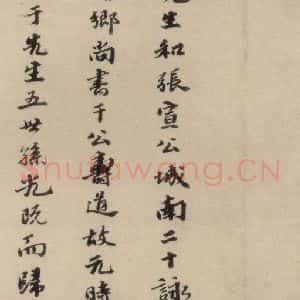 先生和張宣公城南二十詠
鄉尚書干公壽道故元時
于先生五世孫光既而歸
Shufawang.CN